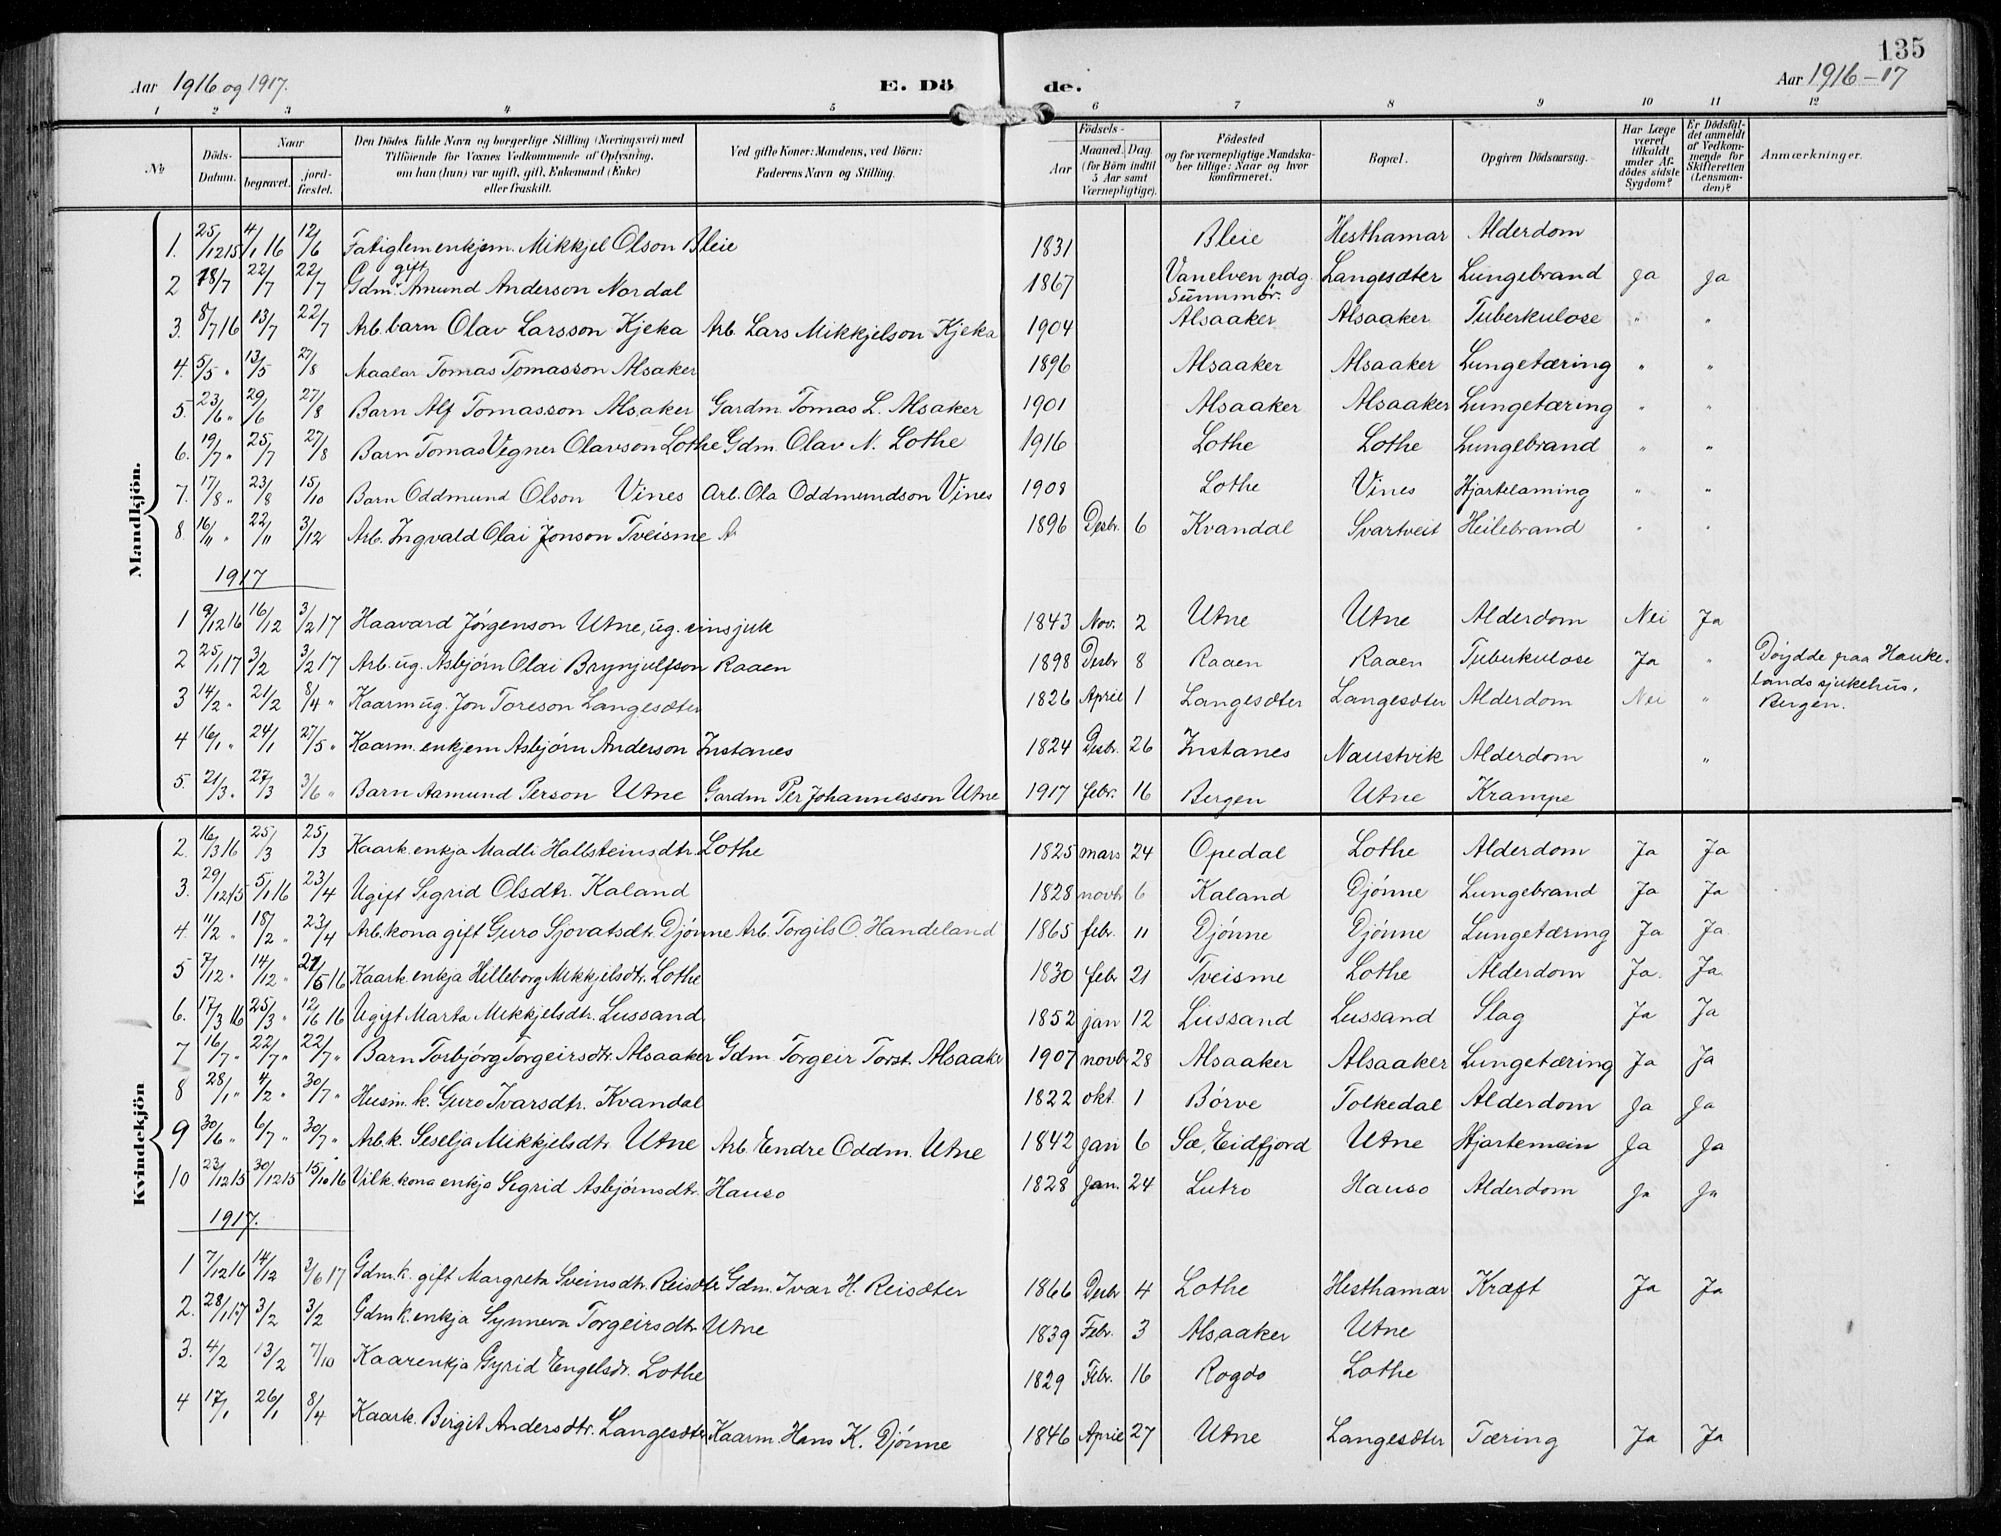 135
Aar 1916 og 1917. E. Dö de. Aar 1916-17
1 2 3 4 5 6 7 8 9 10 11 12
No Döds-Datum. Naar begravet. jord-fæstet. Den Dödes fulde Navn og borgerlige Stilling (Næringsvei) med Tilföiende for Voxnes Vedkommende af Oplysning, om han (hun) var ugift, gift, Enkemand (Enke) eller fraskilt. Ved gifte Koner: Mandens, ved Börn: Faderens Navn og Stilling. Födsels- Aar Maaned. Dag. (for Börn indtil 5 Aar samt Værnepligtige). Födested og for værnepligtige Mandska-ber tillige: Naar og hvor konfirmeret. Bopæl. Opgiven Dödsaarsag. Har Læge været tilkaldt under Af-dödes sidste Sygdom? Er Dödsfal-det anmeldt af Vedkom-mende for Skifteretten (Lensman-den)? Anmærkninger.
Mandkjön.
1. 25/12 15 4/1 16 12/6 Fatiglem enkjem. Mikkjel Olson Bleie 1831 Bleie Hesthamar Alderdom
2 18/7 22/7 22/7 Gdm. gift Amund Anderson Nordal 1867 Vanelven pdg. Sunnmör. Langesæter Lungebrand Ja Ja
3. 8/7 16 13/7 22/7 Arb. barn Olav Larsson Kjeka Arb. Lars Mikkjelson Kjeka 1904 Alsaaker Alsaaker Tuberkulose " "
4. 5/5 " 13/5 27/8 Maalar Tomas Tomasson Alsaker 1896 Alsaaker Alsaaker Lungetæring " "
5. 23/6 " 29/6 27/8 Barn Alf Tomasson Alsaker Gardm. Tomas L. Alsaker 1901 Alsaaker Alsaaker Lungetæring " "
6. 19/7 " 25/7 27/8 Barn Tomas Vegner Olavson Lothe Gdm. Olav N. Lothe 1916 Lothe Lothe Lungebrand " "
7. 17/8 " 23/8 15/10 Barn Oddmund Olson Vines Arb. Ola Oddmundson Vines 1908 Lothe Vines Hjartelaming " "
8. 16/11 " 22/11 3/12 Arb. Ingvald Olai Jonson Tveisme 1896 Desbr. 6 Kvandal Svartveit Heilebrand " "
1917
1 9/12 16 16/12 3/2 17 Haavard Jörgenson Utne, ug. sinsjuk 1843 Nov. 2 Utne Utne Alderdom Nei Ja
2 25/1 17 3/2 3/2 17 Arb. ug. Asbjörn Olai Brynjulfson Raaen 1898 Desbr 8 Raaen Raaen Tuberkulose Ja " Döydde paa Hauke-lands sjukehus, Bergen.
3 14/2 " 21/2 8/4 " Kaarm ug. Jon Toreson Langesæter 1826 April 1 Langesæter Langesæter Alderdom Nei "
4 16/1 " 24/1 27/5 " Kaarm. enkjem Asbjörn Anderson Instanes 1824 Desbr. 26 Instanes Naustvik Alderdom "
5. 21/3 " 27/3 3/6 " Barn Aamund Person Utne Gardm Per Johannesson Utne 1917 febr. 16 Bergen Utne Krampe
Kvindekjön
2. 16/3 16 25/3 25/3 Kaark. enkja Madli Hallsteinsdtr. Lothe 1825 mars 24 Opedal Lothe Alderdom Ja Ja
3. 29/12 15 5/1 16 23/4 Ugift Sigrid Olsdtr. Kaland 1828 novb 6 Kaland Djönne Lungebrand Ja Ja
4. 11/2 " 18/2 " 23/4 Arb. kona gift Guro Sjovatsdtr. Djönne Arb. Torgils O. Handeland 1865 febr. 11 Djönne Djönne Lungetæring Ja Ja
5 7/12 " 14/12 " 27/5 16 Kaark. enkja Hilleborg Mikkjelsdtr. Lothe 1830 febr 21 Tveisme Lothe Alderdom Ja. Ja
6. 17/3 16 25/3 " 12/6 16 Ugift Marta Mikkjelsdtr. Lussand 1852 jan 12 Lussand Lussand Slag Ja Ja
7 16/7 " 22/7 " 22/7 " Barn Torbjörg Torgeirsdtr. Alsaaker Gdm. Torgeir Torst. Alsaaker 1907 novb 28 Alsaaker Alsaaker Lungetæring Ja Ja
8 28/1 " 4/2 " 30/7 " Husm. k. Guro Ivarsdtr. Kvandal 1822 okt. 1 Börve Tolkedal Alderdom Ja Ja
9 30/6 " 6/7 " 30/7 " Arb. k. Seselja Mikkjelsdtr. Utne Arb. Endre Oddm. Utne 1842 jan 6 Sæ, Eidfjord Utne Hjartemein Ja Ja
10 23/12 15 30/12 15 15/10 16 Vilk. kona enkja Sigrid Asbjörnsdtr. Hauso 1828 Jan. 24 Lutro Hauso Alderdom Ja Ja
1917.
1 7/12 16 14/12 3/6 17 Gdm. k. gift Margreta Sveinsdtr. Reisæter Gdm. Ivar H. Reisæter 1866 Desbr 4 Lothe Hesthamar Kræft Ja Ja
2. 28/1 17 3/2 3/2 Gdm k. enkja Synneva Torgeirsdtr. Utne 1839 Febr. 3 Alsaaker Utne
3. 4/2 13/2 7/10 Kaarenkja Gyrid Engelsdr. Lothe 1829 Febr. 16 Rogdo Lothe
4 17/1 26/1 8/4 Kaark. Birgit Andersdtr. Langesæter Kaarm. Hans K. Djönne 1846 April 27 Utne Langesæter Tæring Ja Ja